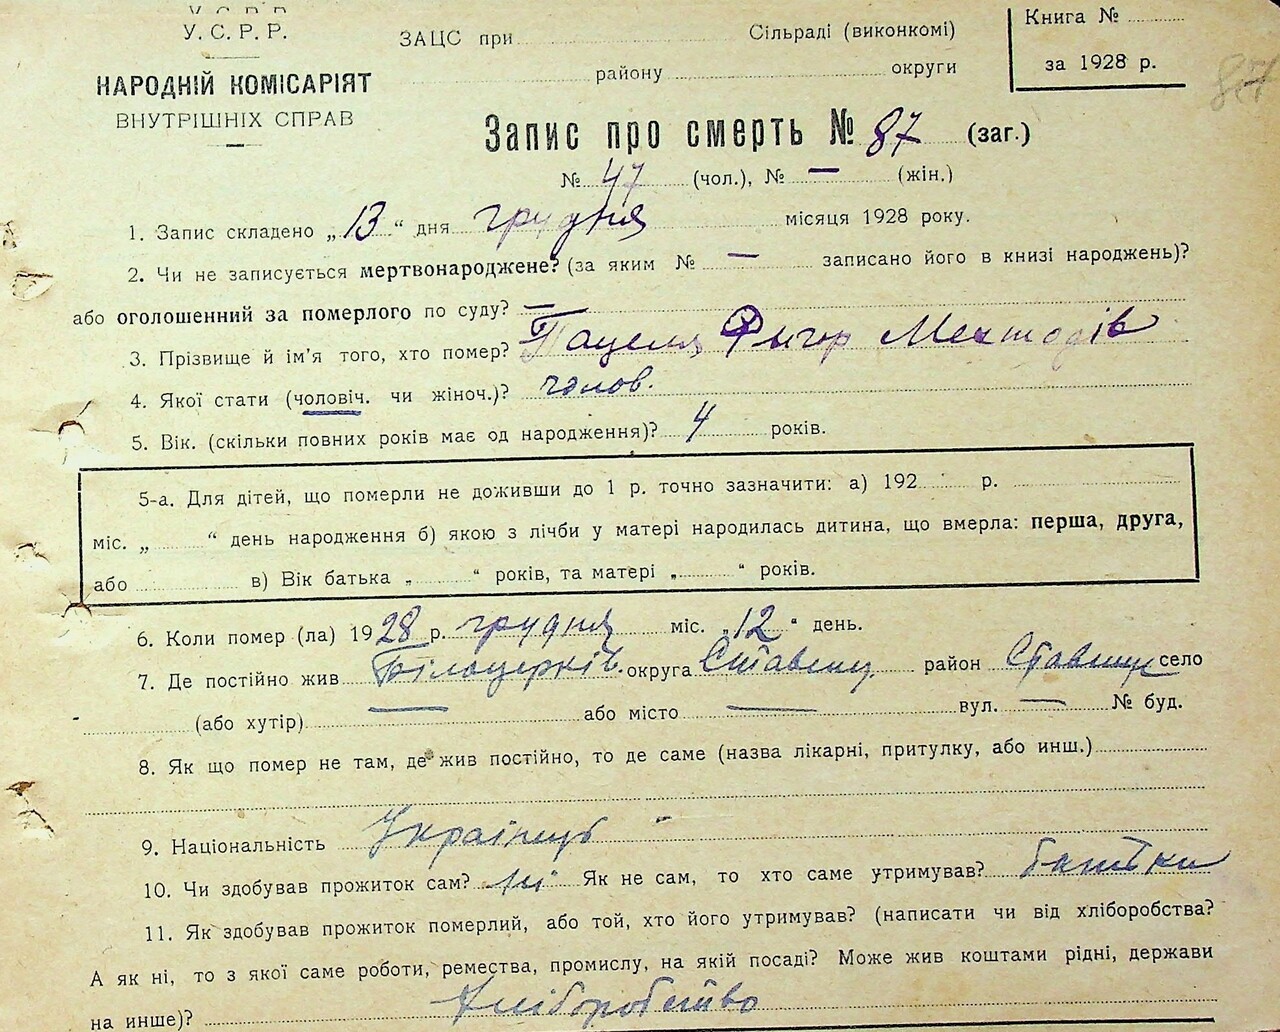 У. С. Р. Р.
НАРОДНІЙ КОМІСАРІЯТ
ВНУТРІШНІХ СПРАВ
ЗАЦС при Сільраді (виконкомі)
району округи
Книга №
за 1928 р.
87
Запис про смерть № 87 (заг.)
№ 47 (чол.), № — (жін.)
1. Запис складено „13“ дня грудня місяця 1928 року.
2. Чи не записується мертвонароджене? (за яким № — записано його в книзі народжень)?
або оголошенний за померлого по суду? —
3. Прізвище й ім'я того, хто помер? Мектодів
4. Якої стати (чоловіч. чи жіноч.)? чолов.
5. Вік. (скільки повних років має од народження)? 4 років.
5-а. Для дітей, що померли не доживши до 1 р. точно зазначити: а) 192 р.
міс. „ “ день народження б) якою з лічби у матері народилась дитина, що вмерла: перша, друга,
або в) Вік батька „ “ років, та матері „ “ років.
6. Коли помер (ла) 1928 р. грудня міс. „12“ день.
7. Де постійно жив Білоцерків. округа Ставищ. район Ставищ село
(або хутір) — або місто — вул. — № буд.
8. Як що помер не там, де жив постійно, то де саме (назва лікарні, притулку, або инш.)
9. Національність Українець
10. Чи здобував прожиток сам? ні Як не сам, то хто саме утримував? батьки
11. Як здобував прожиток померлий, або той, хто його утримував? (написати чи від хліборобства?
А як ні, то з якої саме роботи, ремества, промислу, на якій посаді? Може жив коштами рідні, держави
на инше)? Хліборобство